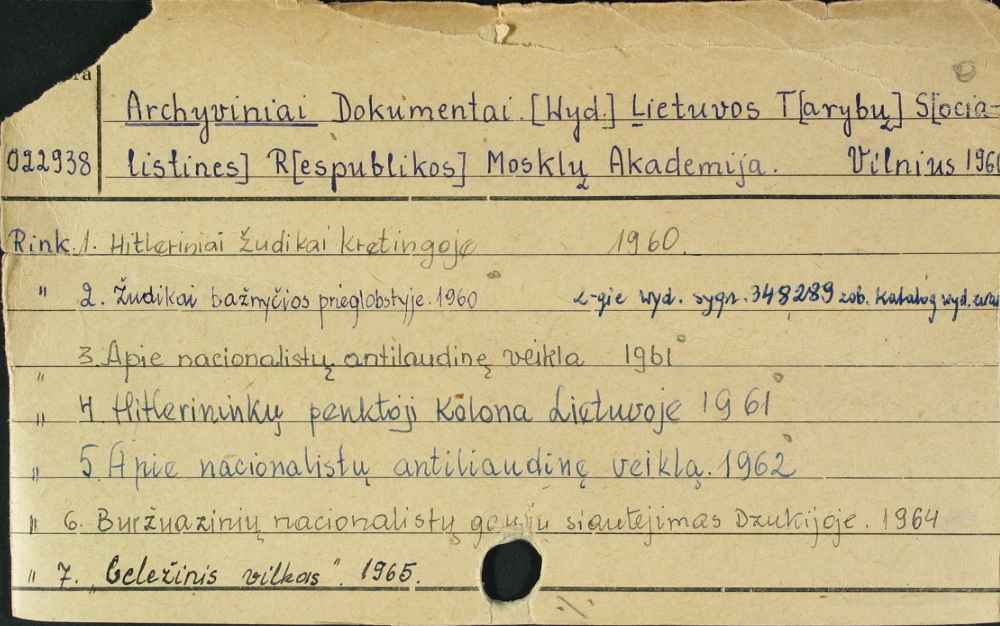 Archyviniai Dokumentai. [Wyd.] Lietuvos T[arybų] S[ocia-
022938 listines] R[espublikos] Mosklų Akademija. Vilnius 1960
Rink. 1. Hitleriniai žudikai kretingoje 1960.
" 2. Žudikai bažnyčios prieglobstyje. 1960 2-gie wyd. sygn. 348289 zob. katalog wyd.
" 3. Apie nacionalistų antilaudinę veikla 1961
" 4. Hitlerininkų penktoji Kolona Lietuvoje 1961
" 5. Apie nacionalistų antiliaudinę veiklą. 1962
" 6. Buržuazinių nacionalistų gaujų siautėjimas Dzukijoje. 1964
" 7. „Geležinis vilkas". 1965.